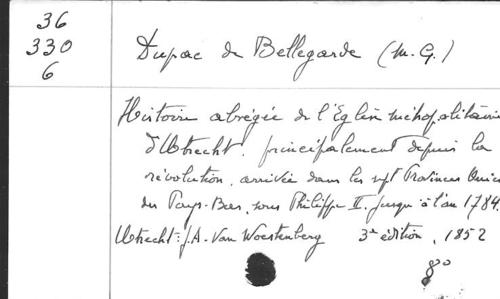 36
330
6
Dupac de Bellegarde (M. G.)
Histoire abrégée de l'Eglise métropolitaine
d'Utrecht, principalement depuis la
révolution, arrivée dans les sept Provinces Unies
des Pays-Bas, sous Philippe II. jusqu'à l'an 1784.
Utrecht: J.A. Van Woestenberg 3e édition, 1852
8°